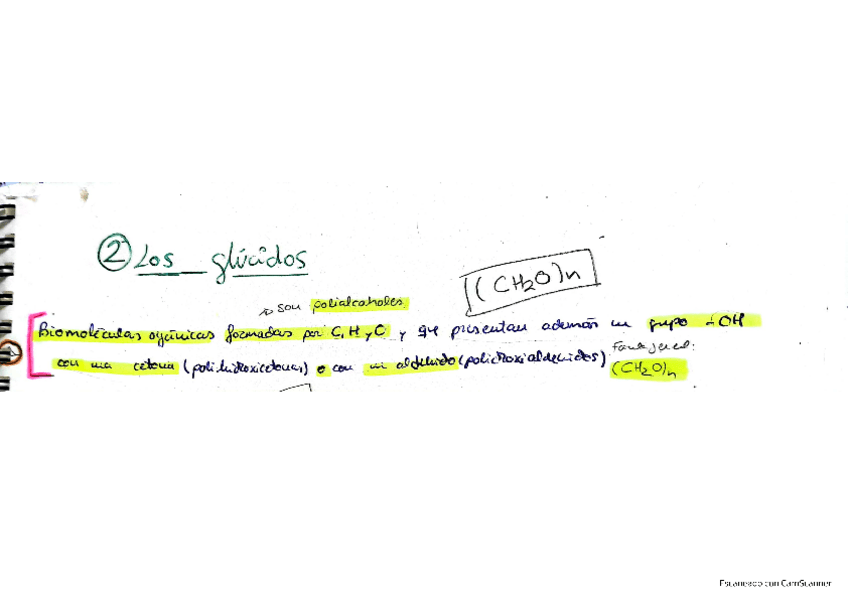 ② Los glúcidos
(CH₂O)n
→ son polialcoholes.
Biomoléculas orgánicas formadas por C, H y C y que presentan además un grupo -OH
Form. general:
con una cetona (polihidroxicetonas) o con un aldehido (polidroxialdehidos) (CH₂O)n
Escaneado con CamScanner